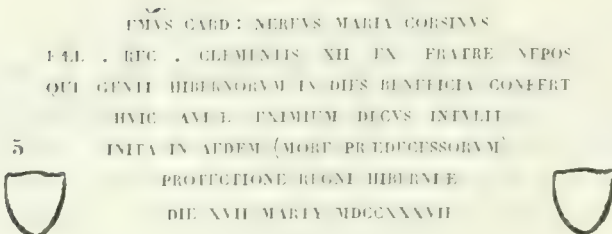 EMVS CARD : NEREVS MARIA CORSINVS
FEL . REC . CLEMENTIS XII EX FRATRE NEPOS
QUI GENTI HIBERNORVM IN DIES BENEFICIA CONFERT
HVIC AVLÆ EXIMIUM DECVS INTVLIT
5 INITA IN AEDEM (MORE PRÆDECESSORVM)
PROTECTIONE REGNI HIBERNIÆ
DIE XVII MARTY MDCCXXXVII